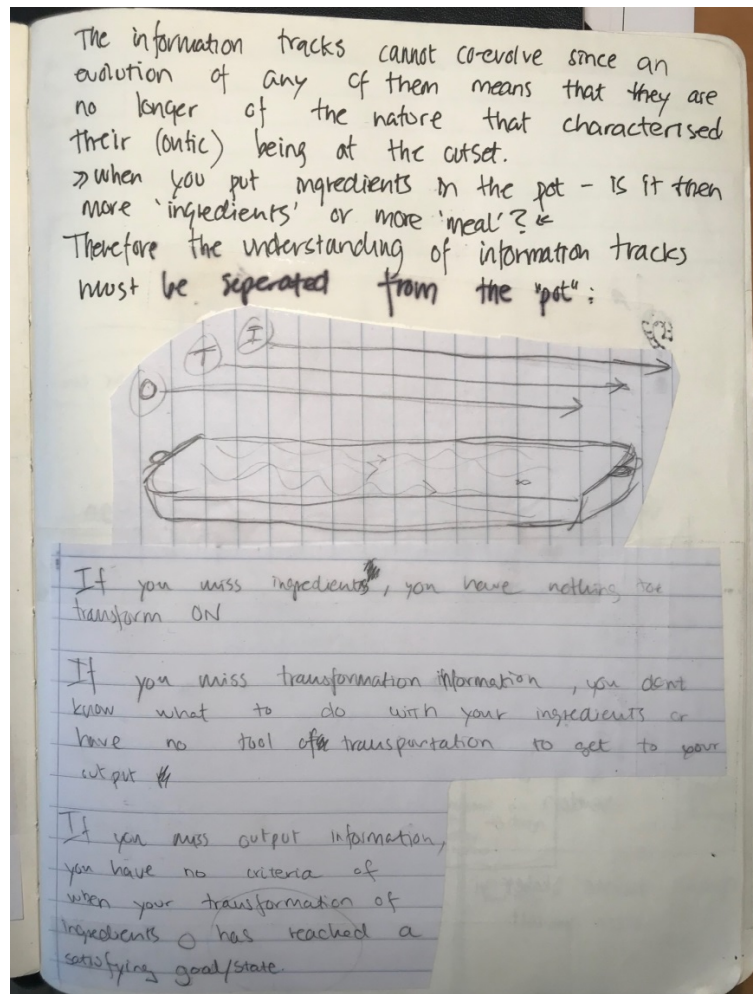 The information tracks cannot co-evolve since an
evolution of any of them means that they are
no longer of the nature that characterised
their (ontic) being at the outset.
» when you put ingredients in the pot – is it then
more 'ingredients' or more 'meal'?
Therefore the understanding of information tracks
must be seperated from the "pot":
I
T
O
If you miss ingredients, you have nothing to
transform ON
If you miss transformation information, you dont
know what to do with your ingredients or
have no tool of transportation to get to your
output
If you miss output information,
you have no criteria of
when your transformation of
ingredients has reached a
satisfying goal/state.